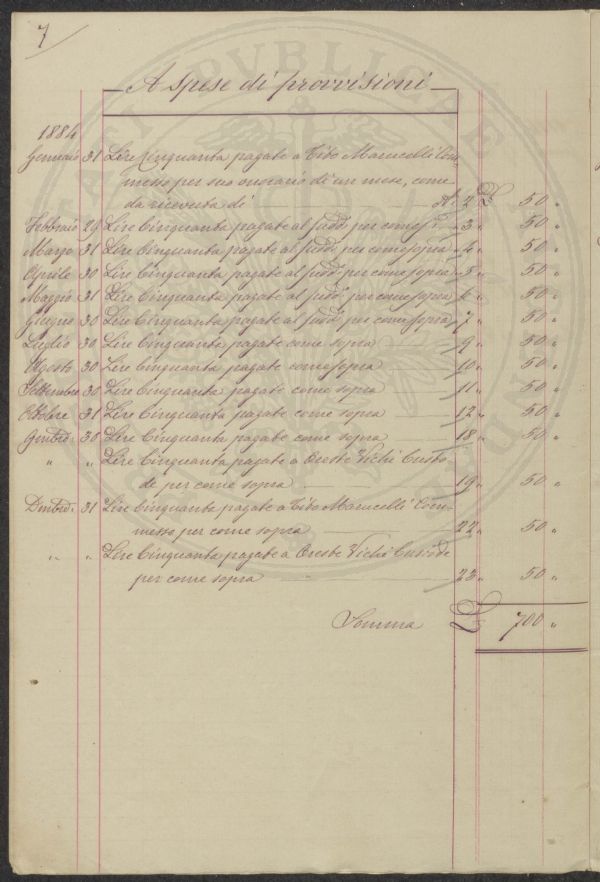 7
A spese di provvisioni
1884
Gennaio 31 Lire Cinquanta pagate a Tito Marucelli Com-
messo per suo onorario di un mese, come
da ricevuta di N. 2 £ 50 "
Febbraio 29 Lire Cinquanta pagate al sudd. per come s. 3 " 50 "
Marzo 31 Lire Cinquanta pagate al sudd. per come sopra 4 " 50 "
Aprile 30 Lire Cinquanta pagate al sudd. per come sopra 5 " 50 "
Maggio 31 Lire Cinquanta pagate al sudd. per come sopra 6 " 50 "
Giugno 30 Lire Cinquanta pagate al sudd. per come sopra 7 " 50 "
Luglio 30 Lire Cinquanta pagate come sopra 9 " 50 "
Agosto 30 Lire Cinquanta pagate come sopra 10 " 50 "
Settembre 30 Lire Cinquanta pagate come sopra 11 " 50 "
Ottobre 31 Lire Cinquanta pagate come sopra 12 " 50 "
30 Lire Cinquanta pagate come sopra 18 " 50 "
" " Lire Cinquanta pagate a Oreste Vichi Custo-
de per come sopra 19 " 50 "
31 Lire Cinquanta pagate a Tito Marucelli Com-
messo per come sopra 22 " 50 "
" " Lire Cinquanta pagate a Oreste Vichi Custode
per come sopra 23 " 50 "
Somma £ 700 "